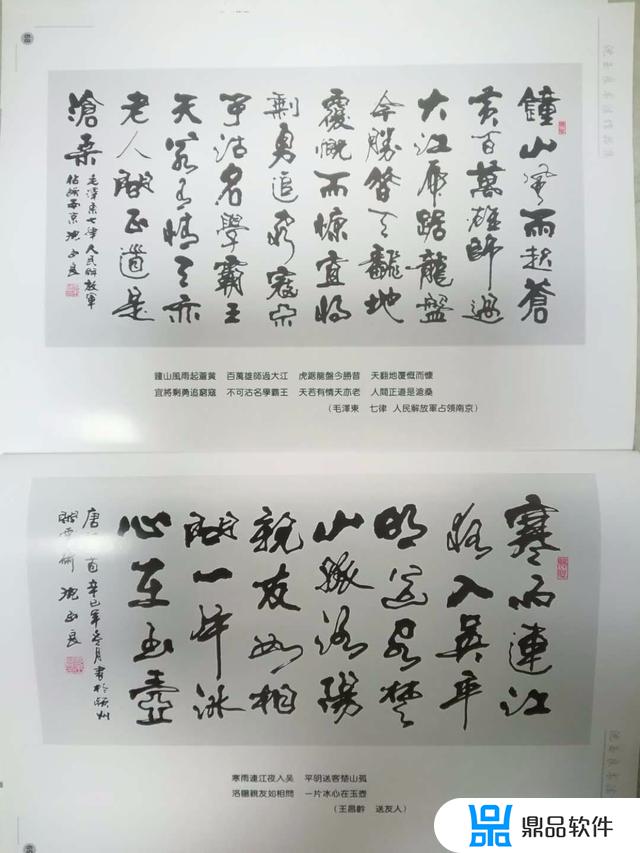 鐘山風雨起蒼
黃百萬雄師過
大江虎踞龍盤
今勝昔天翻地
覆慨而慷宜將
剩勇追窮寇不
可沽名學霸王
天若有情天亦
老人間正道是
滄桑
毛澤東七律人民解放軍
佔領南京
鍾山風雨起蒼黃 百萬雄師過大江 虎踞龍盤今勝昔 天翻地覆慨而慷
宜將剩勇追窮寇 不可沽名學霸王 天若有情天亦老 人間正道是滄桑
(毛澤東 七律 人民解放軍占領南京)
寒雨連江
夜入吳平
明送客楚
山孤洛陽
親友如相
問一片冰
心在玉壺
唐詩一首辛巳年冬月書於潁州
寒雨連江夜入吳 平明送客楚山孤
洛陽親友如相問 一片冰心在玉壺
(王昌齡 送友人)
鼎品软件